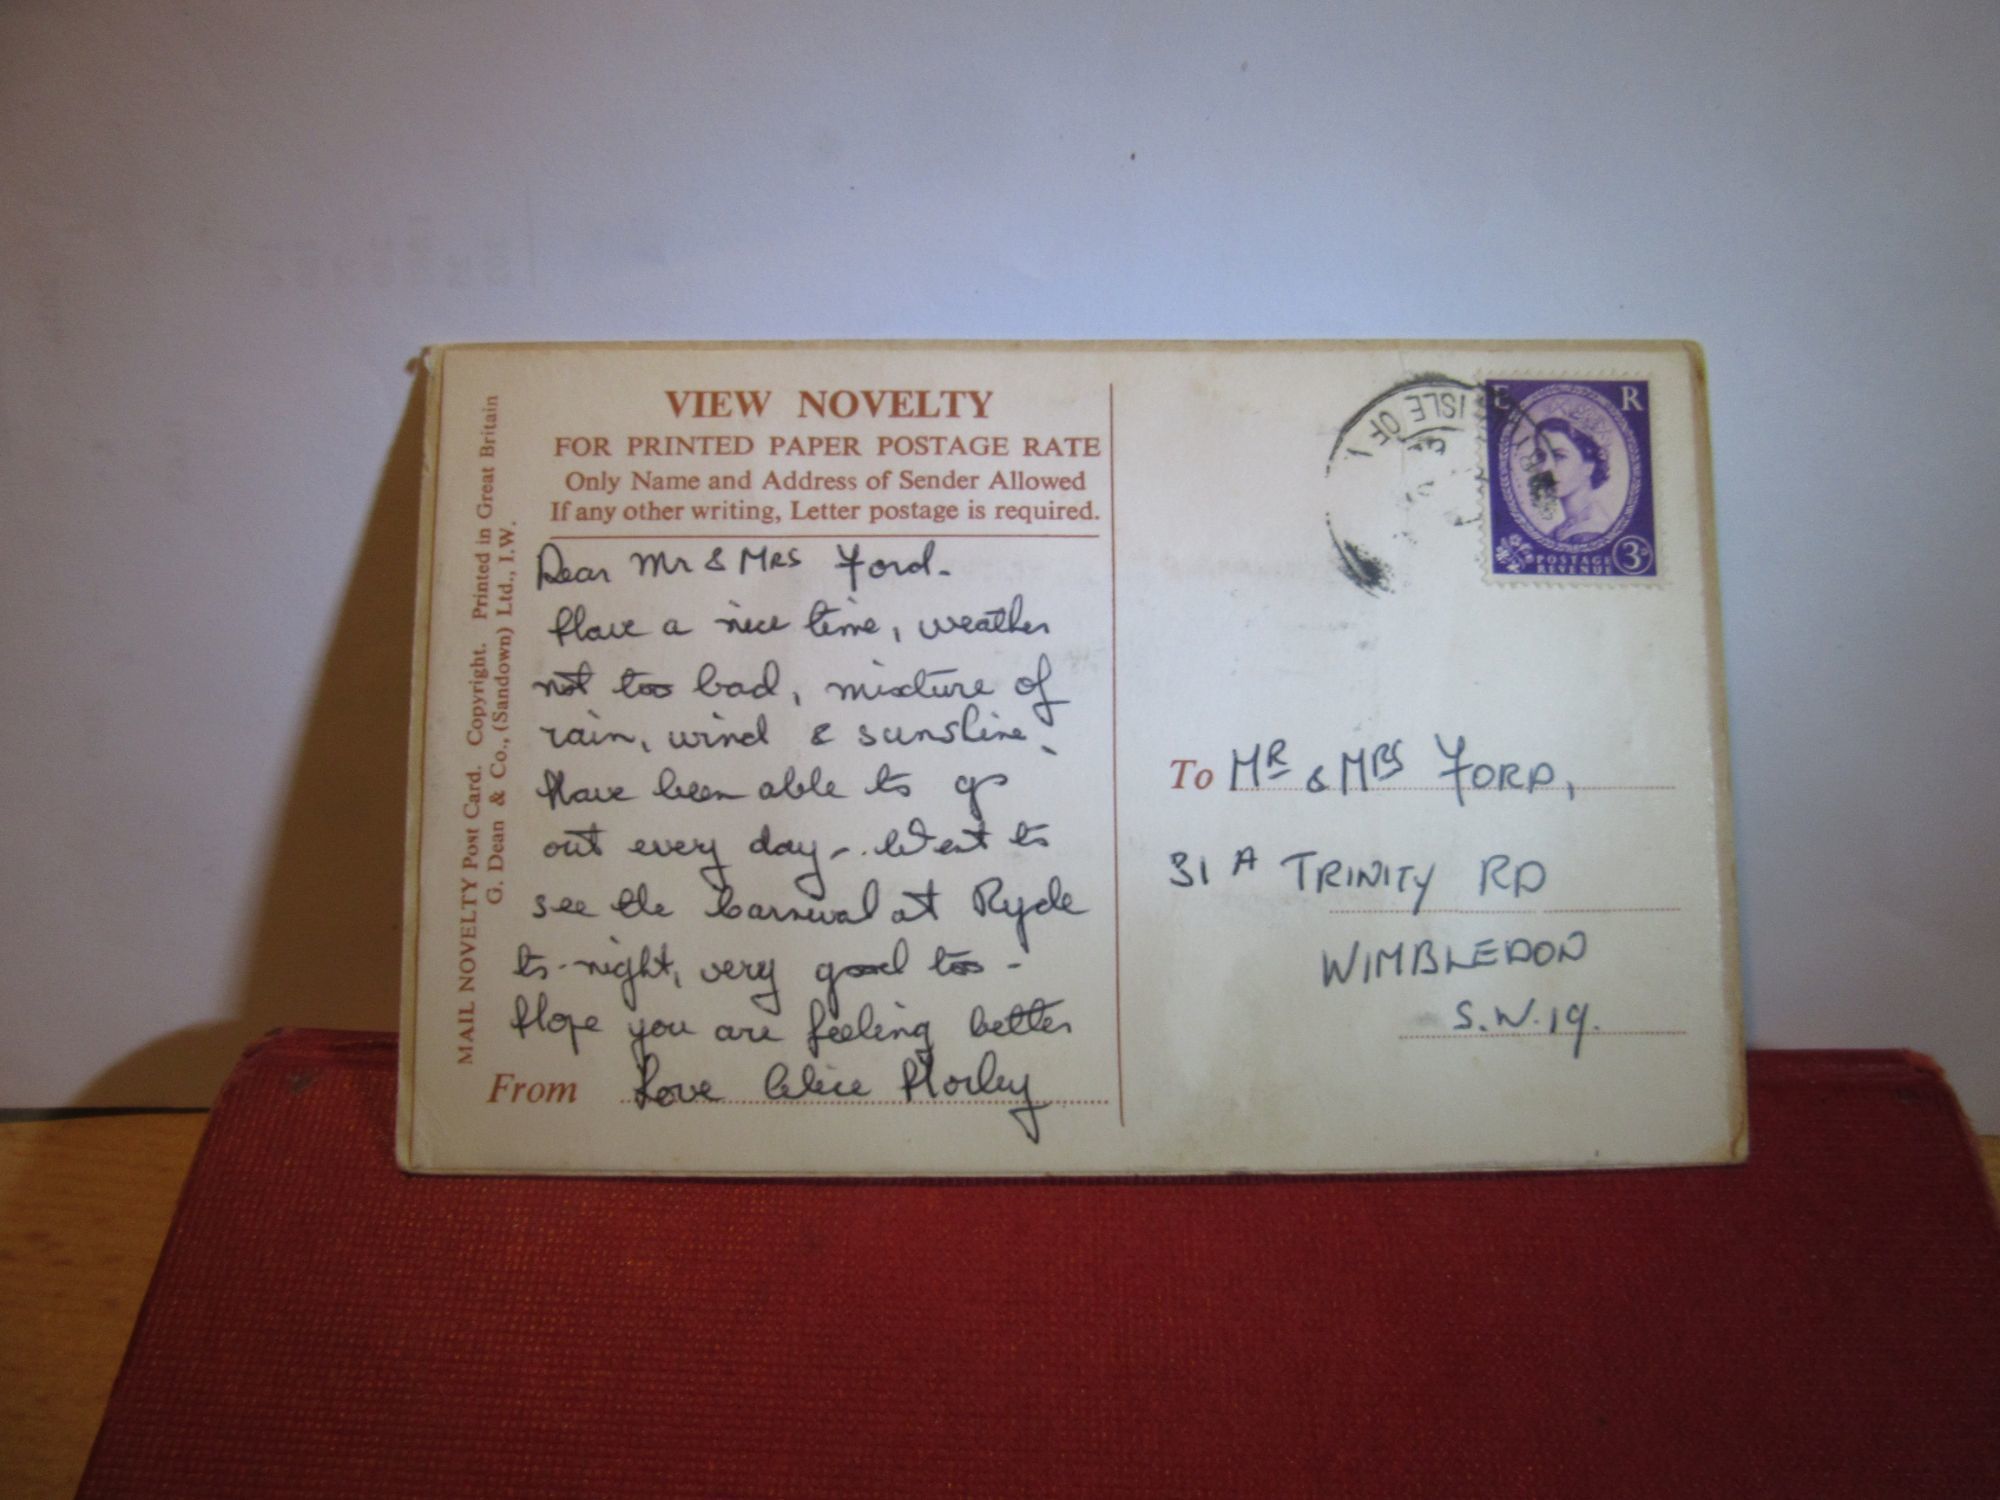 MAIL NOVELTY Post Card. Copyright. Printed in Great Britain
G. Dean & Co., (Sandown) Ltd., I.W.
VIEW NOVELTY
FOR PRINTED PAPER POSTAGE RATE
Only Name and Address of Sender Allowed
If any other writing, Letter postage is required.
Dear Mr & Mrs Ford.
Have a nice time, weather
not too bad, mixture of
rain, wind & sunshine.
Have been able to go
out every day -. Went to
see the Carnival at Ryde
to-night, very good too -
Hope you are feeling better
From Love Alice Horley
ISLE OF
E R
POSTAGE
REVENUE
3D
To MR & MRS FORD,
31A TRINITY RD
WIMBLEDON
S.W.19.